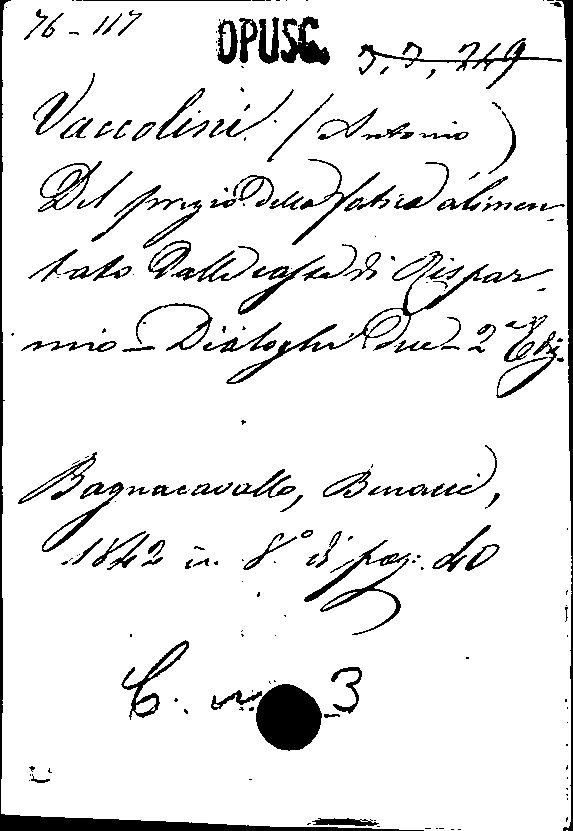 76-117
OPUSC. 3,3,249
Vaccolini (Antonio)
Del prezzo della fatica alimen-
tato dalle casse di Rispar-
mio - Dialoghi due - 2ª Ediz.
Bagnacavallo, Benacci,
1842 in 8° di pag: 40
C. n. 3